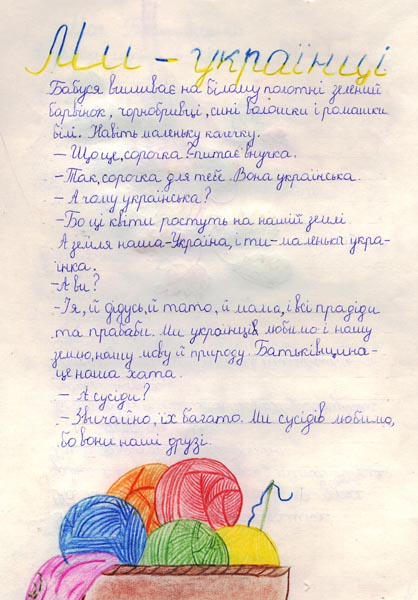 Ми - українці
Бабуся вишиває на білому полотні зелений
барвінок, чорнобривці, сині волошки і ромашки
білі. Навіть маленьку качечку.
– Що це, сорочка? – питає внучка.
– Так, сорочка для тебе. Вона українська.
– А чому українська?
– Бо ці квіти ростуть на нашій землі.
А земля наша – Україна, і ти – маленька укра-
їнка.
– А ви?
– І я, й дідусь, й тато, й мама, і всі прадіди
та прабаби. Ми українці любимо і нашу
землю, нашу мову й природу. Батьківщина –
це наша хата.
– А сусіди?
– Звичайно, їх багато. Ми сусідів любимо,
бо вони наші друзі.